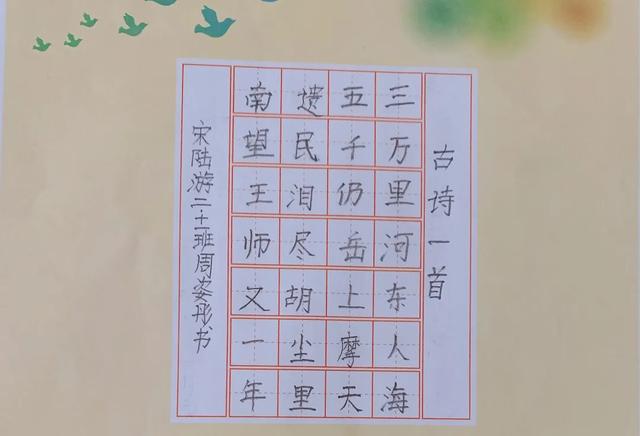 古诗一首
三万里河东人海
五千仍岳上摩天
遗民泪尽胡尘里
南望王师又一年
宋陆游二十一班周姿彤书